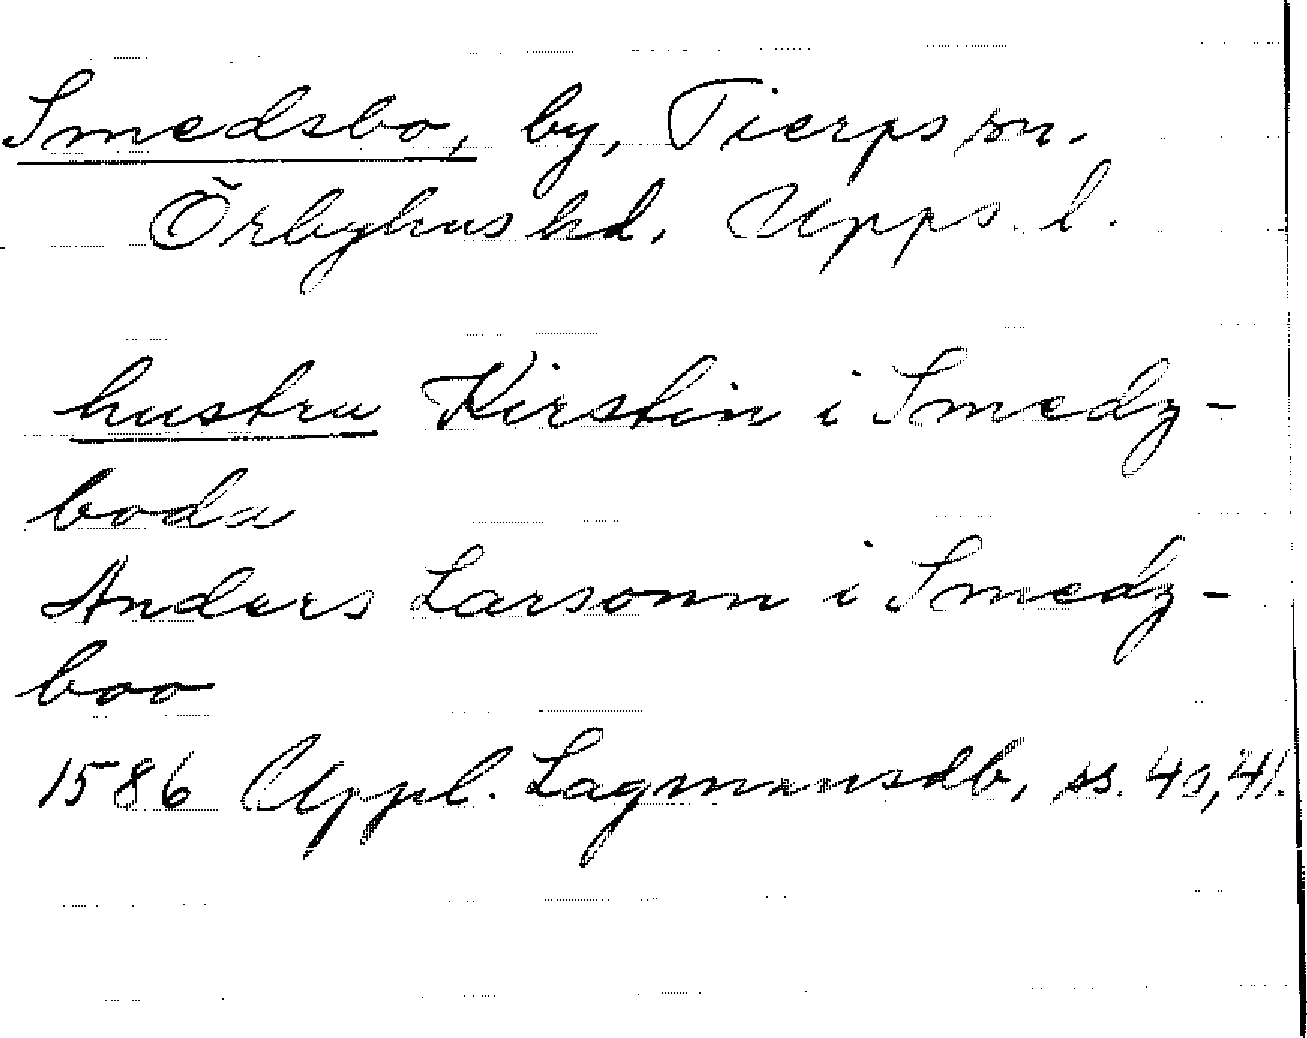 Smedsbo, by, Tierps sn.
Örbyhus hd. Upps. l.
hustru Kirstin i Smedz-
boda
Anders Larsonn i Smedz-
boo
1586 Uppl. Lagmansdb, ss. 40, 41.